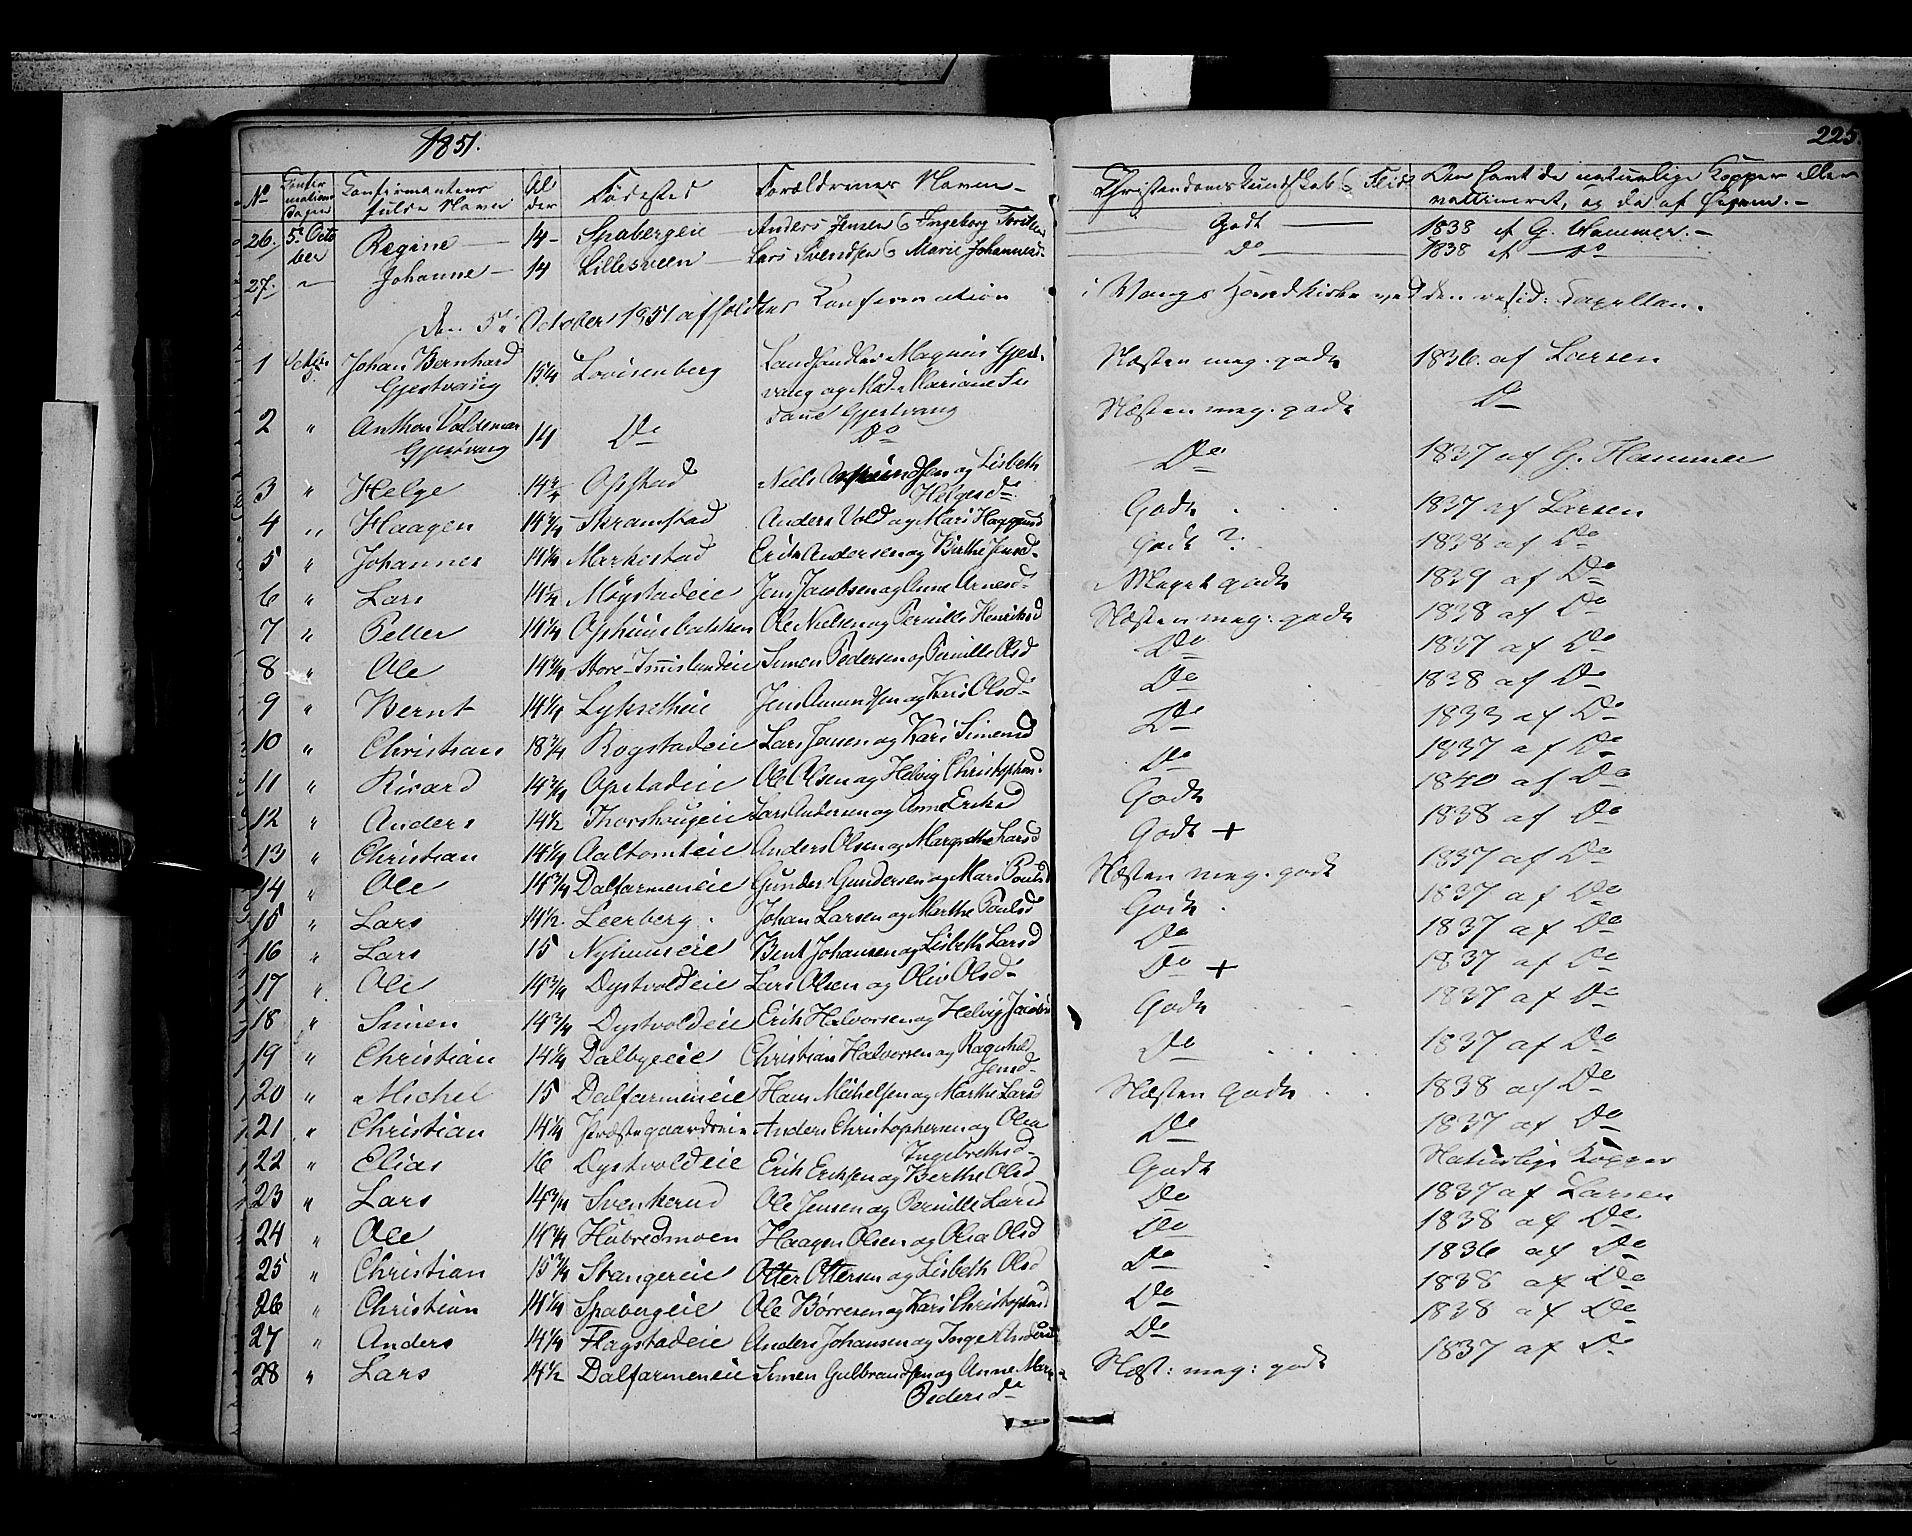 1851.
225.
No Confirmations Dagen Confirmantens fulde Navn Alder Fødested Forældrenes Navn Christendoms Kundskab & Flid Den havt de naturlige Kopper eller vaccineret, og da af hvem.
26. 5te October Regine 14 Spabergeie Anders Jensen & Ingeborg Godt 1838 af G. Hammer.
27. " Johanne 14 Lillesveen Lars Svendsen & Marie Johannesd. Do 1838 af Do
Den 5te October 1851 afholdtes Confirmation i Vangs Hovedkirke ved den resid: Capellan.
1 Octbr 5. Johan Bernhard Gjestvang 15 1/4 Lovisenberg Landhandler Magnus Gjestvang og Mad. Mariane Gjestvang Næsten meg: godt 1836 af Larsen
2 " Anthon Valdemar Gjestvang 14 Do Do Næsten meg: godt Do
3 " Helge 14 3/4 Opstad Niels Amundsen og Lisbeth Helgesd. Do 1837 af G. Hammer
4 " Haagen 14 3/4 Skramstad Anders Vold og Mari Godt 1837 af Larsen
5 " Johannes 14 1/4 Markestad Erik Andersen og Birthe Jensd. Godt ? 1838 af Do
6 " Lars 14 1/2 Møystadeie Jens Jacobsen og Anne Arnesd. Meget godt 1839 af Do
7 " Petter 14 1/4 Ophuusbakken Ole Nielsen og Pernille Henriksd Næsten meg: godt 1838 af Do
8 " Ole 14 3/4 Store Imislundeie Simen Pedersen og Pernille Olsd Do 1837 af Do
9 " Bernt 14 1/4 Lykseteie Jens Amundsen og Kari Olsd. Do 1838 af Do
10 " Christian 18 3/4 Rogstadeie Lars Jensen og Kari Simensd Do 1833 af Do
11 " Ricard 14 3/4 Opstadeie Ole Olsen og Helvig Christophers. Do 1837 af Do
12 " Anders 14 1/2 Thorshougeie Lars Andersen og Anne Eriksd Godt 1840 af Do
13 " Christian 14 1/4 Aaltomteie Anders Olsen og Margrethe Larsd Godt + 1838 af Do
14 " Ole 14 3/4 Dalfarmeneie Gunder Gundersen og Mari Poulsd Næsten meg: godt 1837 af Do
15 " Lars 14 1/2. Leerberg. Johan Larsen og Marthe Poulsd Godt. 1837 af Do
16 " Lars 15 Nyhuuseie Bent Johansen og Lisbeth Larsd Do 1837 af Do
17 " Ole 14 3/4 Dystvoldeie Lars Olsen og Olia Olsd. Do + 1837 af Do
18 " Simen 14 3/4 Dystvoldeie Erik Halvorsen og Helvig Godt 1837 af Do
19 " Christian 14 1/4 Dalbyeie Christian Halvorsen og Ragnhild Jensd. Do 1837 af Do
20 " Michel 15 Dalfarmeneie Hans Michelsen og Marthe Larsd Næsten godt 1838 af Do
21 " Christian 14 1/4 Præstegaardseie Anders Christophersen og Olea Ingebrethsd. Do 1837 af Do
22 " Elias 16 Dystvoldeie Erik Eriksen og Berthe Olsd Godt Naturlige Kopper
23 " Lars 14 3/4 Svenkerud Ole Jensen og Pernille Larsd Do 1837 af Larsen
24 " Ole 14 1/4 Hubredmoen Haagen Olsen og Olea Olsd Do 1838 af Do
25 " Christian 15 3/4 Stangereie Otter Ottersen og Lisbeth Olsd Do 1836 af Do
26 " Christian 14 1/4 Spabergeie Ole Børresen og Kari Christophersd Do 1838 af Do
27 " Anders 14 1/4 Flagstadeie Anders Johansen og Inger Andersd Do 1838 af Do
28 " Lars 14 1/2 Dalfarmeneie Simen Gulbrandsen og Anne Marie Pedersd. Næst: meg: godt 1837 af Do